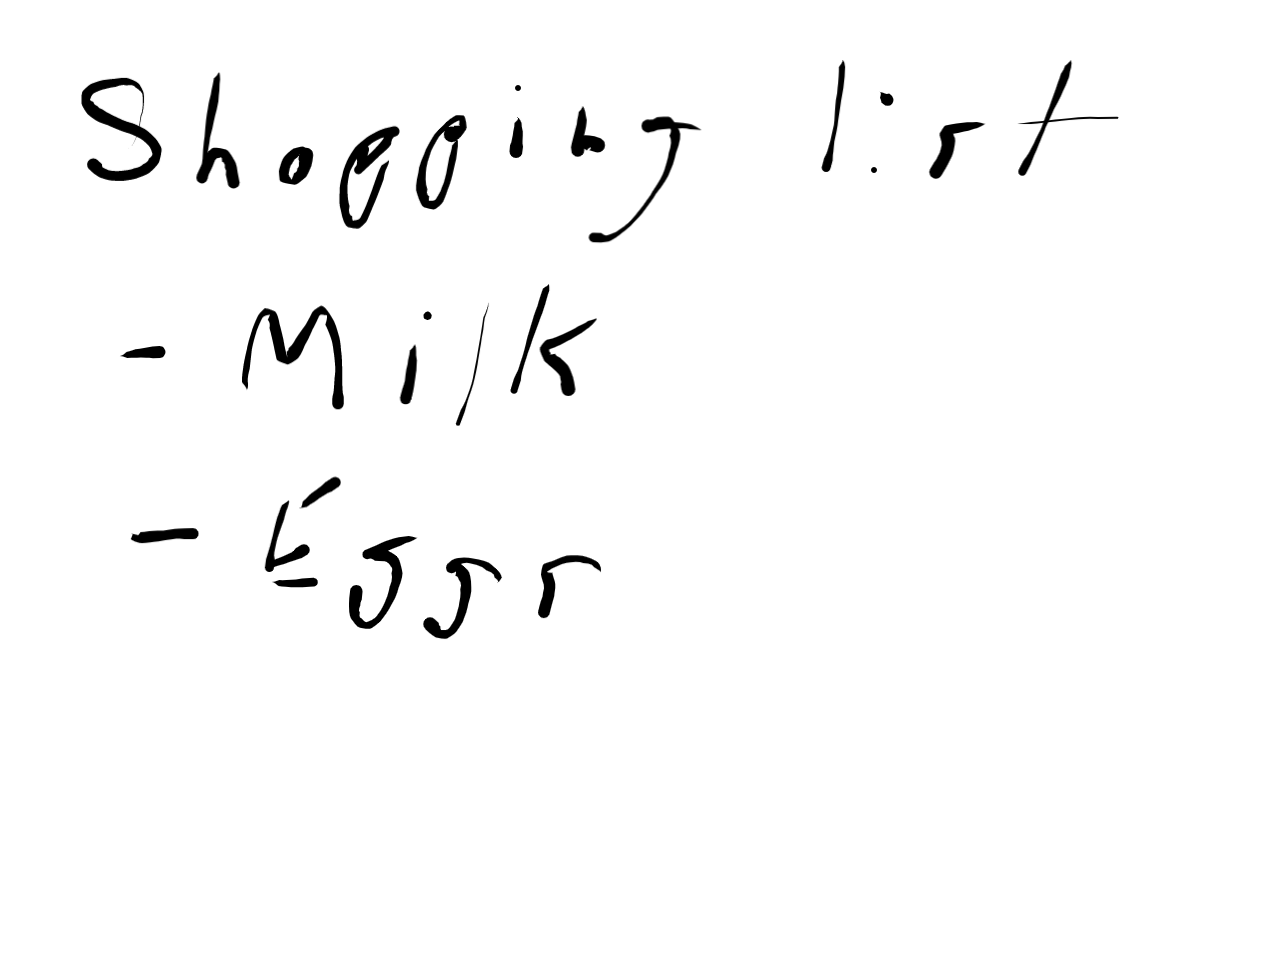 Shopping list
- Milk
- Eggs